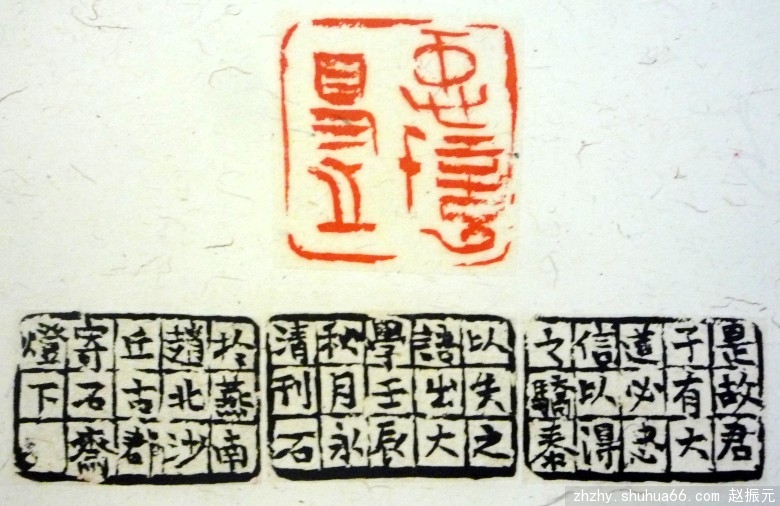 是故君
子有大
道必忠
信以得
之驕泰
以失之
語出大
學壬辰
秋月永
清刊石
於燕南
趙北沙
丘古郡
寄石齋
燈下
zhzhy.shuhua66.com 赵振元